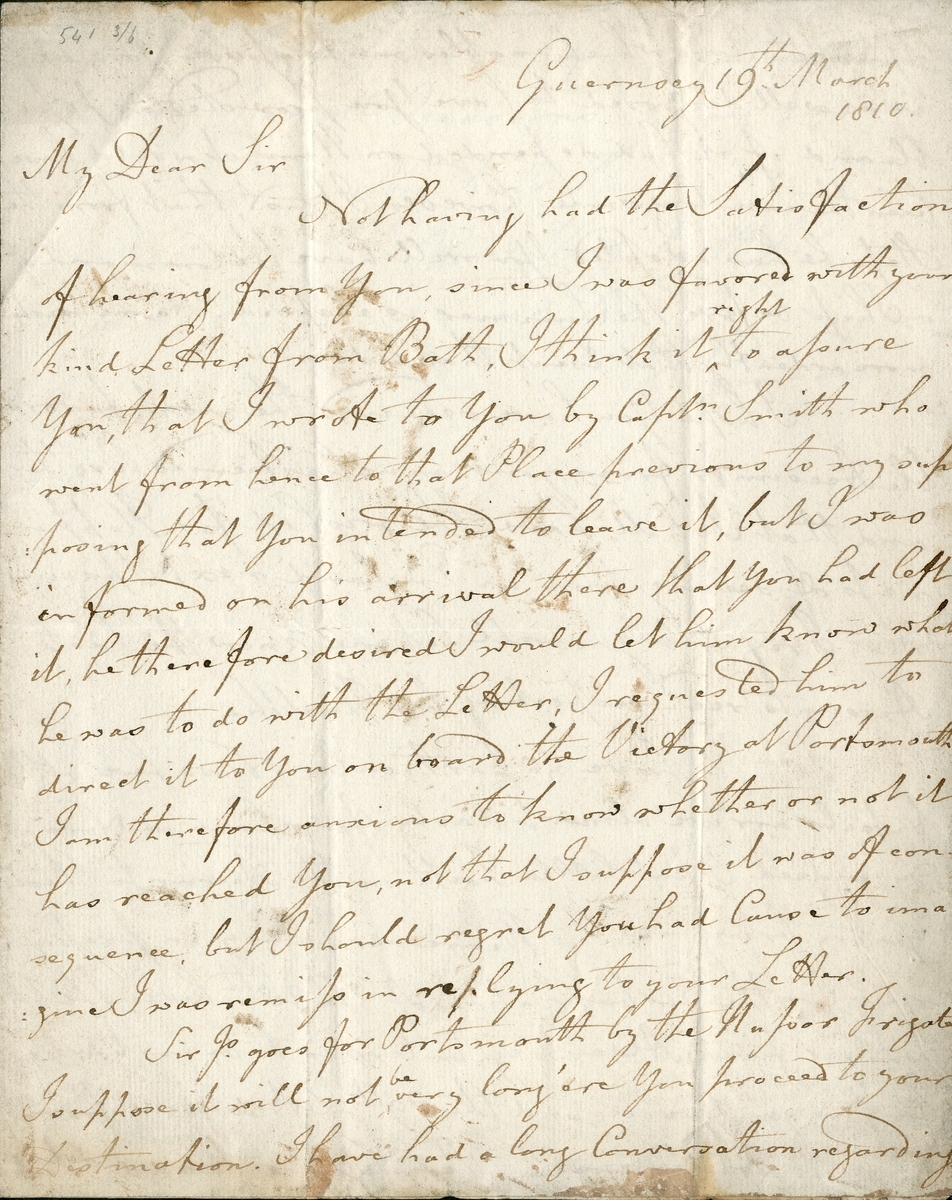 541 3/6
Guernsey 19th March
1810.
My Dear Sir
Not having had the Satisfaction
of hearing from You, since I was favored with your
right
kind Letter from Bath, I think it ^ to assure
You, that I wrote to You by Captn Smith who
went from hence to that Place previous to my sup
:posing that You intended to leave it, but I was
informed on his arrival there that You had left
it, he therefore desired I would let him know what
he was to do with the Letter, I requested him to
direct it to You on board the Victory at Portsmouth
I am therefore anxious to know whether or not it
has reached You, not that I suppose it was of con
sequence, but I should regret You had Cause to ima
:gine I was remiss in replying to your Letter.
Sir Js. goes for Portsmouth by the Frigate
be
I suppose it will not very long 'ere You proceed to your
Destination. I have had a long Conversation regarding